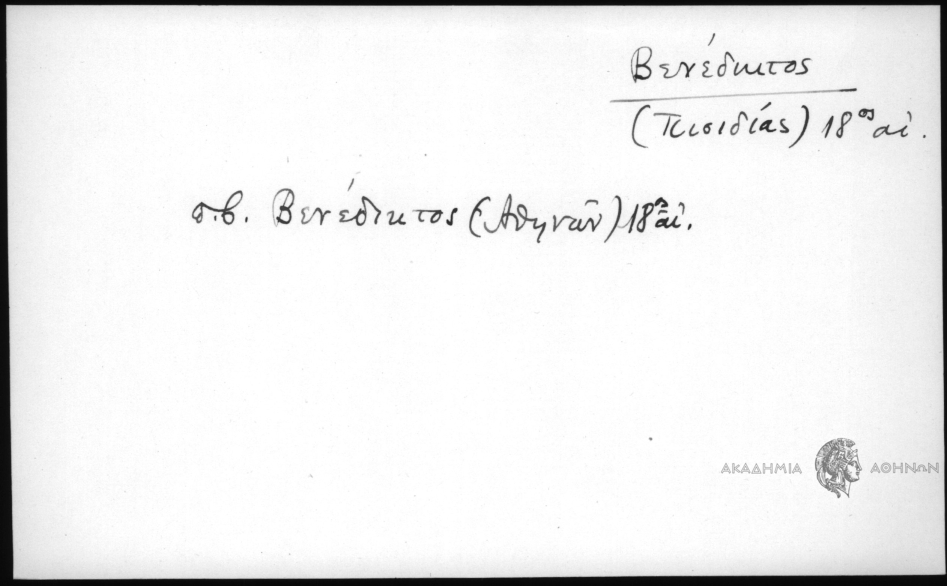 Βενέδικτος
(Πισιδίας) 18ος αἰ.
σ.β. Βενέδικτος (Ἀθηνῶν) 18ος αἰ.
ΑΚΑΔΗΜΙΑ ΑΘΗΝΩΝ